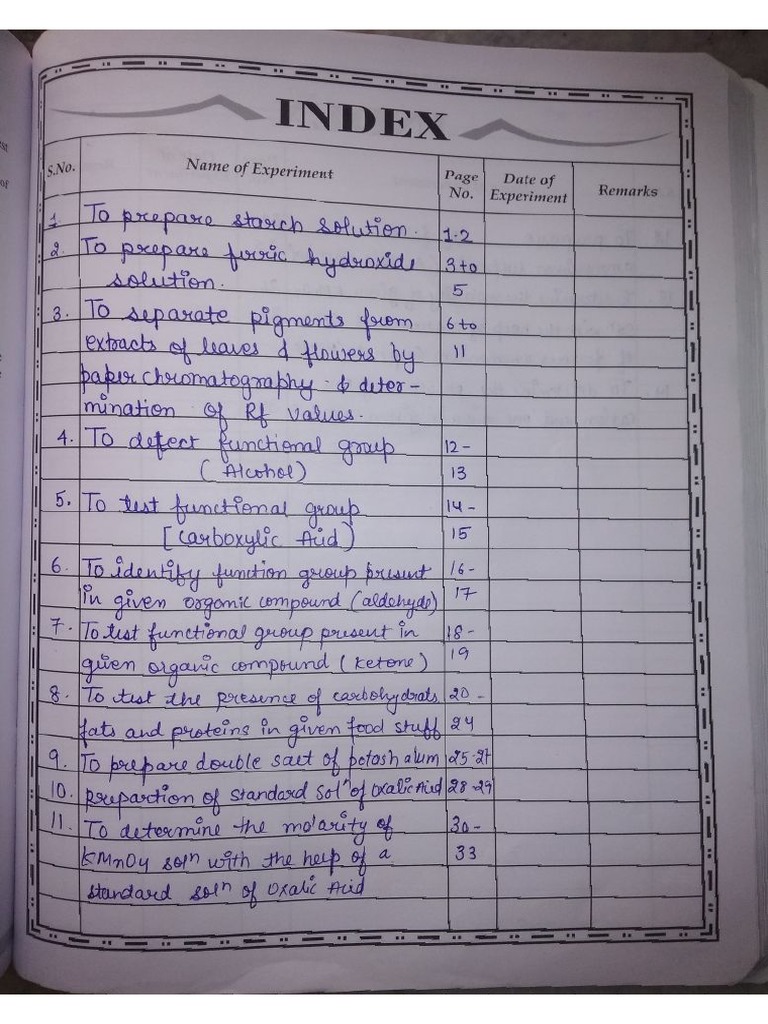 INDEX
S.No. Name of Experiment Page No. Date of Experiment Remarks
1. To prepare starch solution. 1-2
2. To prepare firric hydroxide 3 to
solution. 5
3. To separate pigments from 6 to
extracts of leaves & flowers by 11
paper chromatography & deter-
mination of Rf values.
4. To detect functional group 12-
(Alcohol) 13
5. To test functional group 14-
[Carboxylic Acid) 15
6. To identify function group present 16-
in given organic compound (aldehyde) 17
7. To test functional group present in 18-
given organic compound (ketone) 19
8. To test the presence of carbohydrats, 20-
fats and proteins in given food stuff 24
9. To prepare double salt of potash alum 25-27
10. prepartion of standard solⁿ of Oxalic Acid 28-29
11. To determine the molarity of 30-
KMnO4 solⁿ with the help of a 33
standard solⁿ of Oxalic Acid